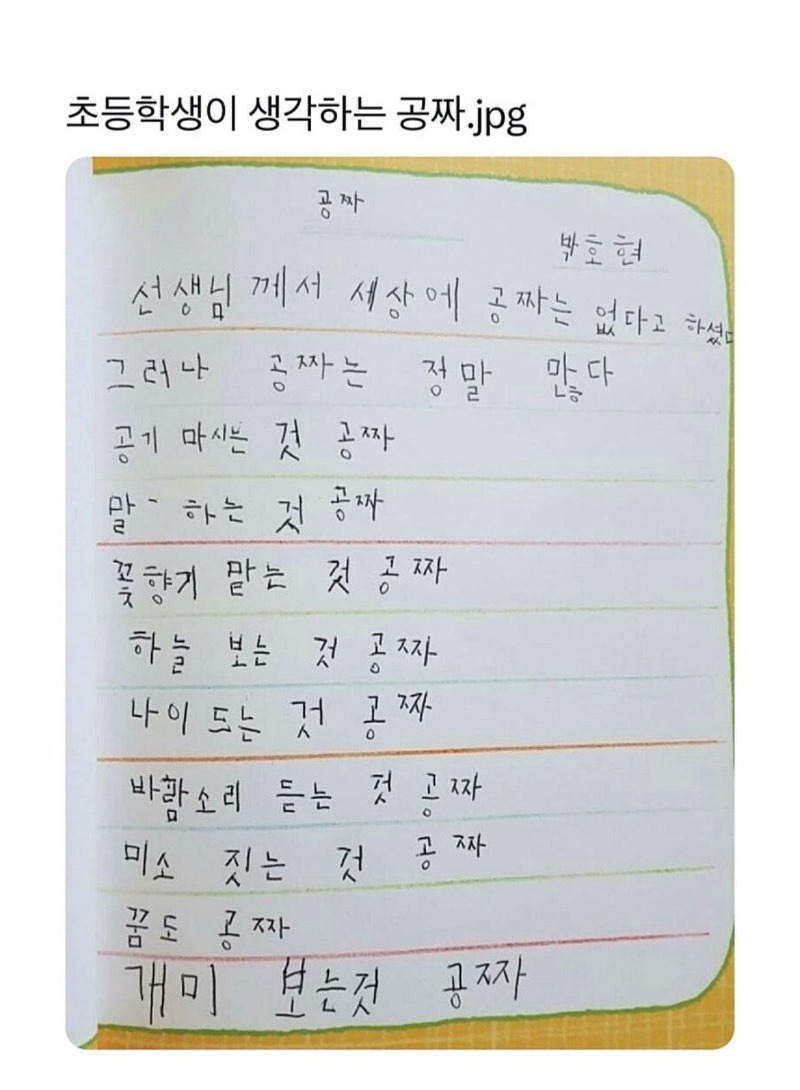 초등학생이 생각하는 공짜.jpg
공짜
박호현
선생님 께서 세상에 공짜는 없다고 하셨다
그러나 공짜는 정말 많다
공기 마시는 것 공짜
말 하는 것 공짜
꽃향기 맡는 것 공짜
하늘 보는 것 공짜
나이 드는 것 공짜
바람소리 듣는 것 공짜
미소 짓는 것 공짜
꿈도 공짜
개미 보는것 공짜